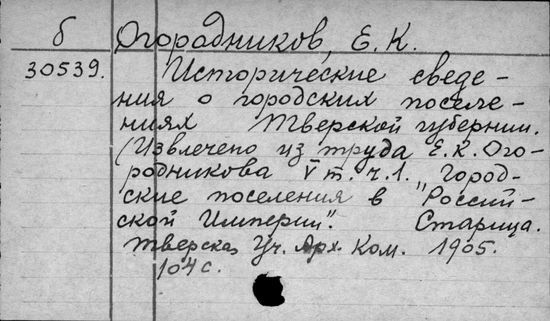 б Огородников, Е. К.
30539. Исторические сведе-
ния о городских поселе-
ниях Тверской губернии.
(Извлечено из труда Е.К. Ого-
родникова V т. ч.1. Город-
ские поселения в "Россий-
ской Империи". Старица.
Тверская Уч. Арх. Ком. 1905.
104 с.